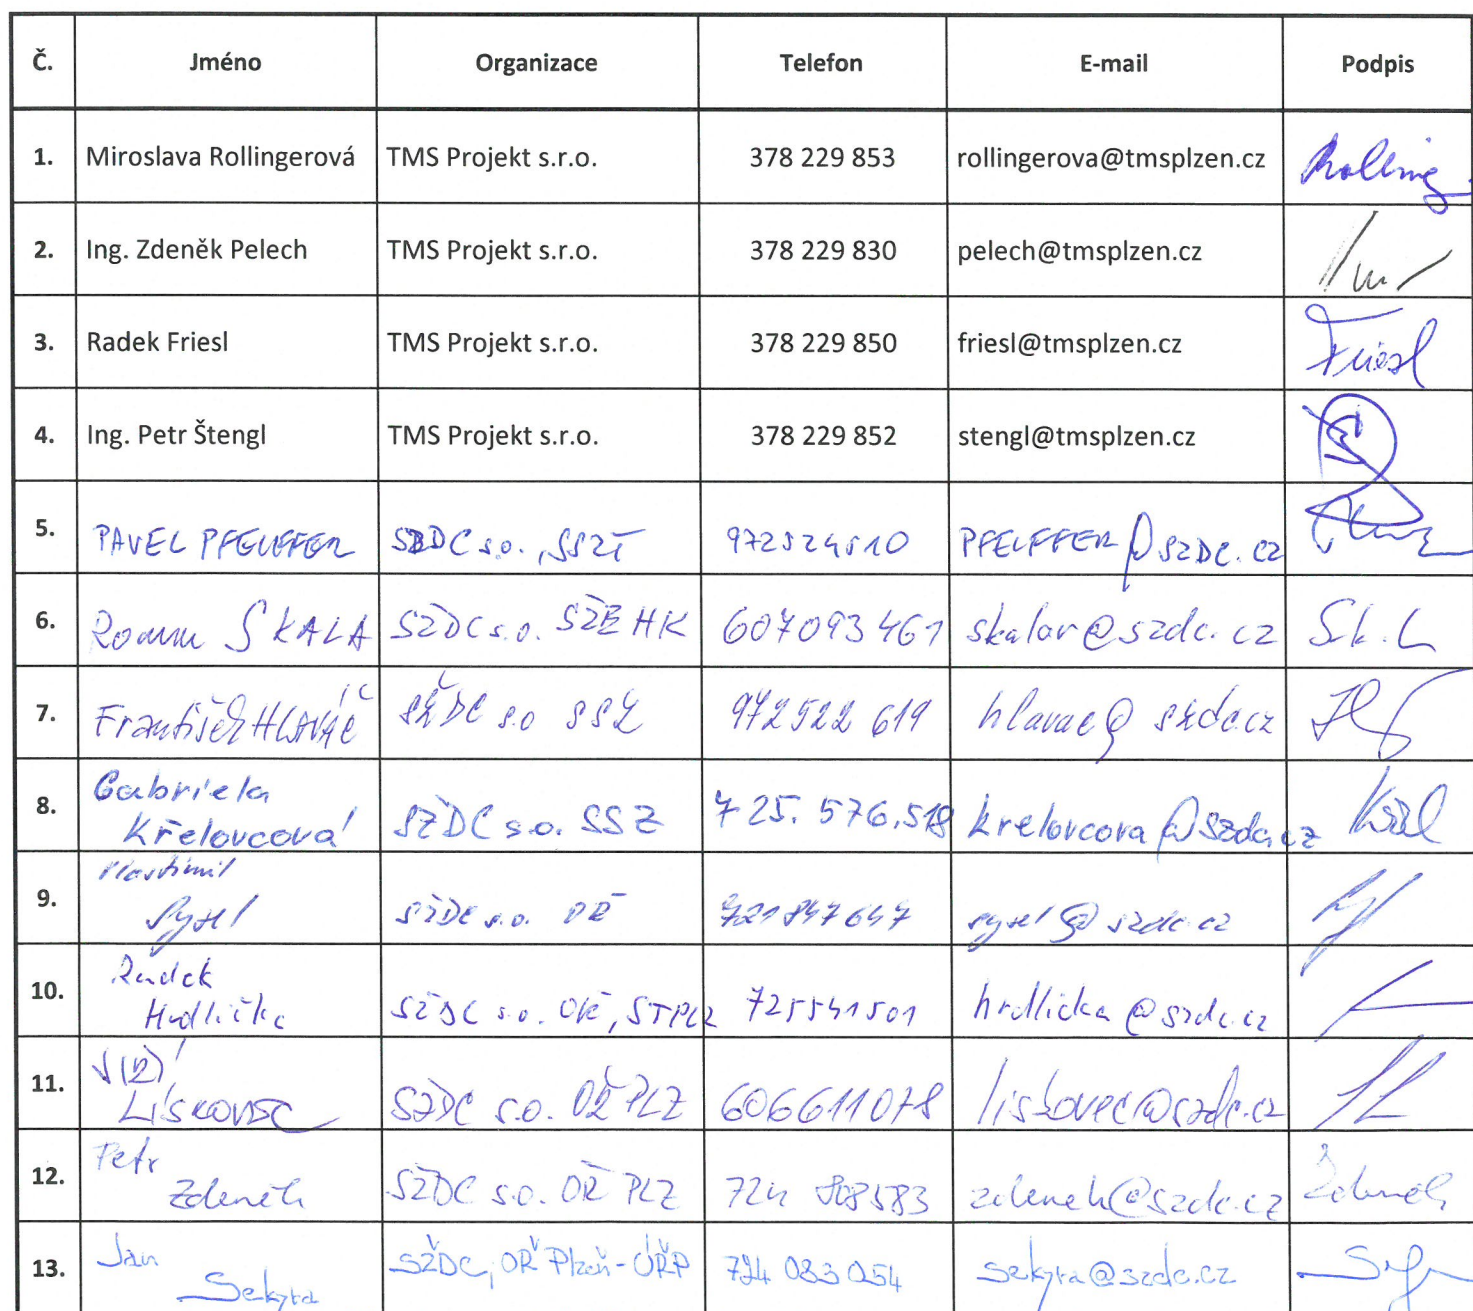 Č. Jméno Organizace Telefon E-mail Podpis
1. Miroslava Rollingerová TMS Projekt s.r.o. 378 229 853 rollingerova@tmsplzen.cz Rolling
2. Ing. Zdeněk Pelech TMS Projekt s.r.o. 378 229 830 pelech@tmsplzen.cz
3. Radek Friesl TMS Projekt s.r.o. 378 229 850 friesl@tmsplzen.cz Friesl
4. Ing. Petr Štengl TMS Projekt s.r.o. 378 229 852 stengl@tmsplzen.cz
5. PAVEL PFEUFFER SŽDC s.o., SSZT 972524510 PFEUFFER@SZDC.CZ
6. Roman SKALA SŽDC s.o. SŽE HK 607093461 skalar@szdc.cz
7. František HLAVÁČ SŽDC s.o SSZ 972522619 hlavac@szdc.cz
8. Gabriela
Křelovcová SŽDC s.o. SSZ 725.576.518 krelovcova@szdc.cz
9. Vlastimil
Sysel SŽDC s.o. OŘ 721847647 sysel@szdc.cz
10. Radek
Hrdlička SŽDC s.o. OŘ, STPLZ 725541501 hrdlicka@szdc.cz
11. JIŘÍ
LÍSKOVEC SŽDC s.o. OŘ PLZ 606611078 liskovec@szdc.cz
12. Petr
Zdeněk SŽDC s.o. OŘ PLZ 724 808583 zdenek@szdc.cz Zdeněk
13. Jan
Sekyra SŽDC, OŘ Plzeň-ÚŘP 724 083 054 sekyra@szdc.cz